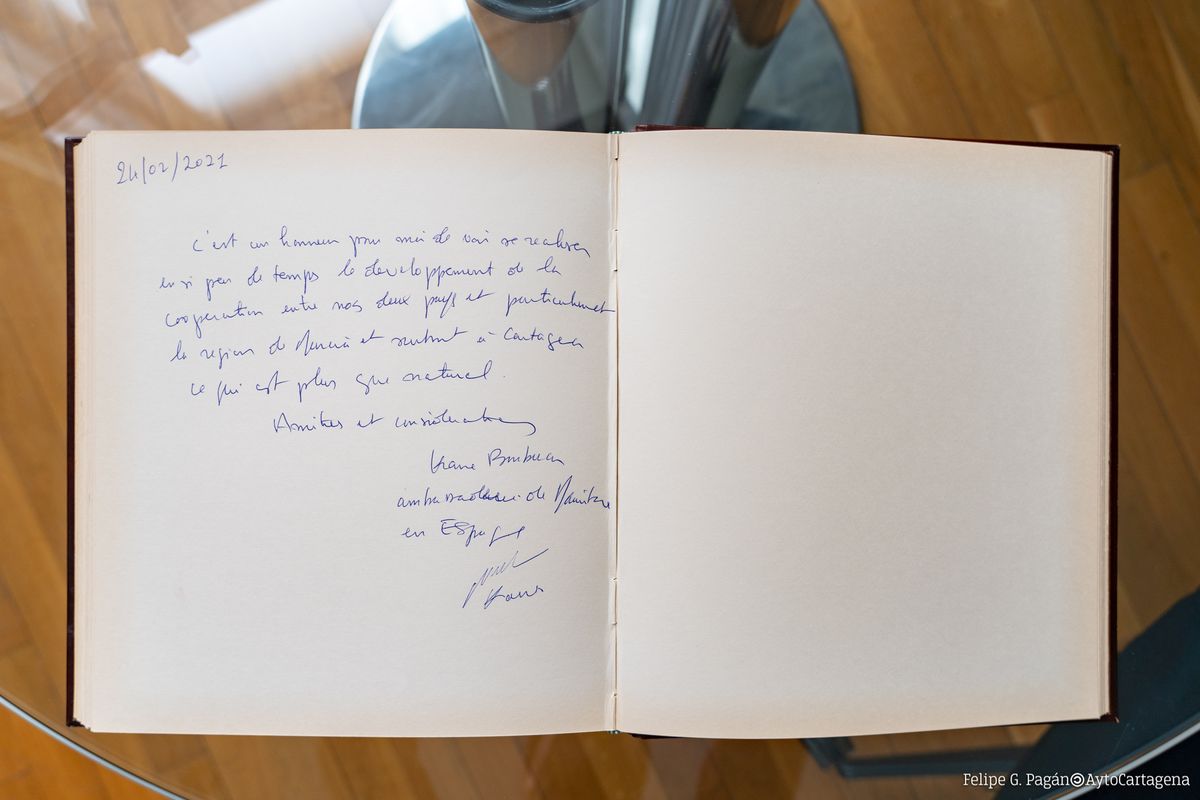 24/02/2021
c'est un honneur pour moi de voir se realiser
en si peu de temps le developpement de la
cooperation entre nos deux pays et particulierement
la region de Murcia et surtout à Cartagena
ce qui est plus que naturel.
Amitiés et considerations
ambassadeur de Mauritanie
en ESpagne
Felipe G. Pagán©AytoCartagena